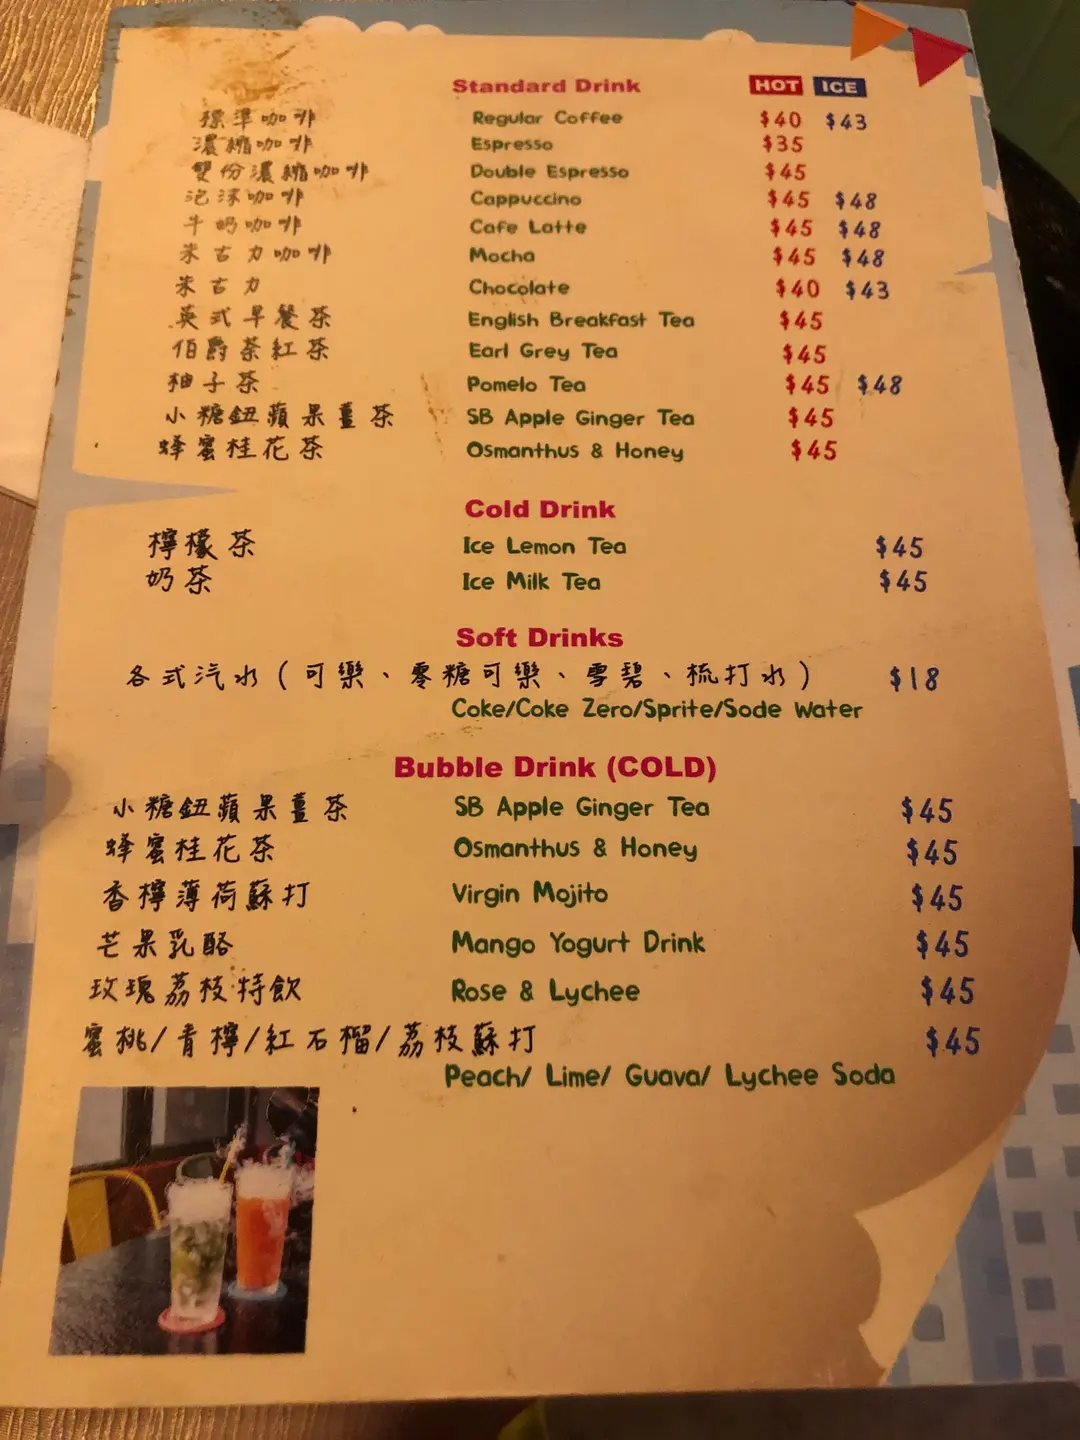 Standard Drink HOT ICE
標準咖啡 Regular Coffee $40 $43
濃縮咖啡 Espresso $35
雙份濃縮咖啡 Double Espresso $45
泡沫咖啡 Cappuccino $45 $48
牛奶咖啡 Cafe Latte $45 $48
朱古力咖啡 Mocha $45 $48
朱古力 Chocolate $40 $43
英式早餐茶 English Breakfast Tea $45
伯爵茶紅茶 Earl Grey Tea $45
柚子茶 Pomelo Tea $45 $48
小糖鈕蘋果薑茶 SB Apple Ginger Tea $45
蜂蜜桂花茶 Osmanthus & Honey $45
Cold Drink
檸檬茶 Ice Lemon Tea $45
奶茶 Ice Milk Tea $45
Soft Drinks
各式汽水(可樂、零糖可樂、雪碧、梳打水) $18
Coke/Coke Zero/Sprite/Sode Water
Bubble Drink (COLD)
小糖鈕蘋果薑茶 SB Apple Ginger Tea $45
蜂蜜桂花茶 Osmanthus & Honey $45
香檸薄荷蘇打 Virgin Mojito $45
芒果乳酪 Mango Yogurt Drink $45
玫瑰荔枝特飲 Rose & Lychee $45
蜜桃/青檸/紅石榴/荔枝蘇打 $45
Peach/ Lime/ Guava/ Lychee Soda